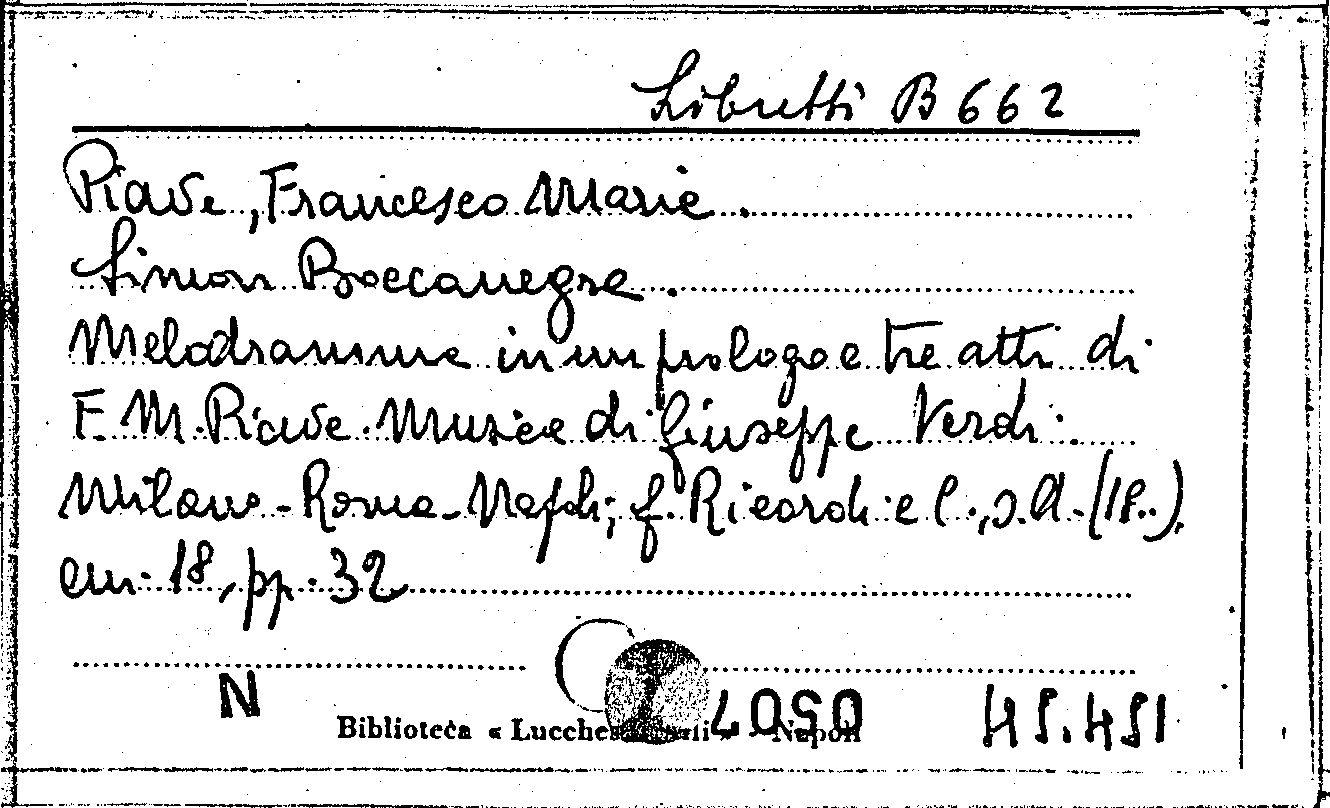 Libretti B 662
Piave, Francesco Maria.
Simon Boccanegra.
Melodramma in un prologo e tre atti di
F. M. Piave. Musica di Giuseppe Verdi.
Milano-Roma-Napoli; f. Ricordi e C., s.a. (18..).
cm. 18, pp. 32
N
Biblioteca « Lucchesi Palli » Napoli